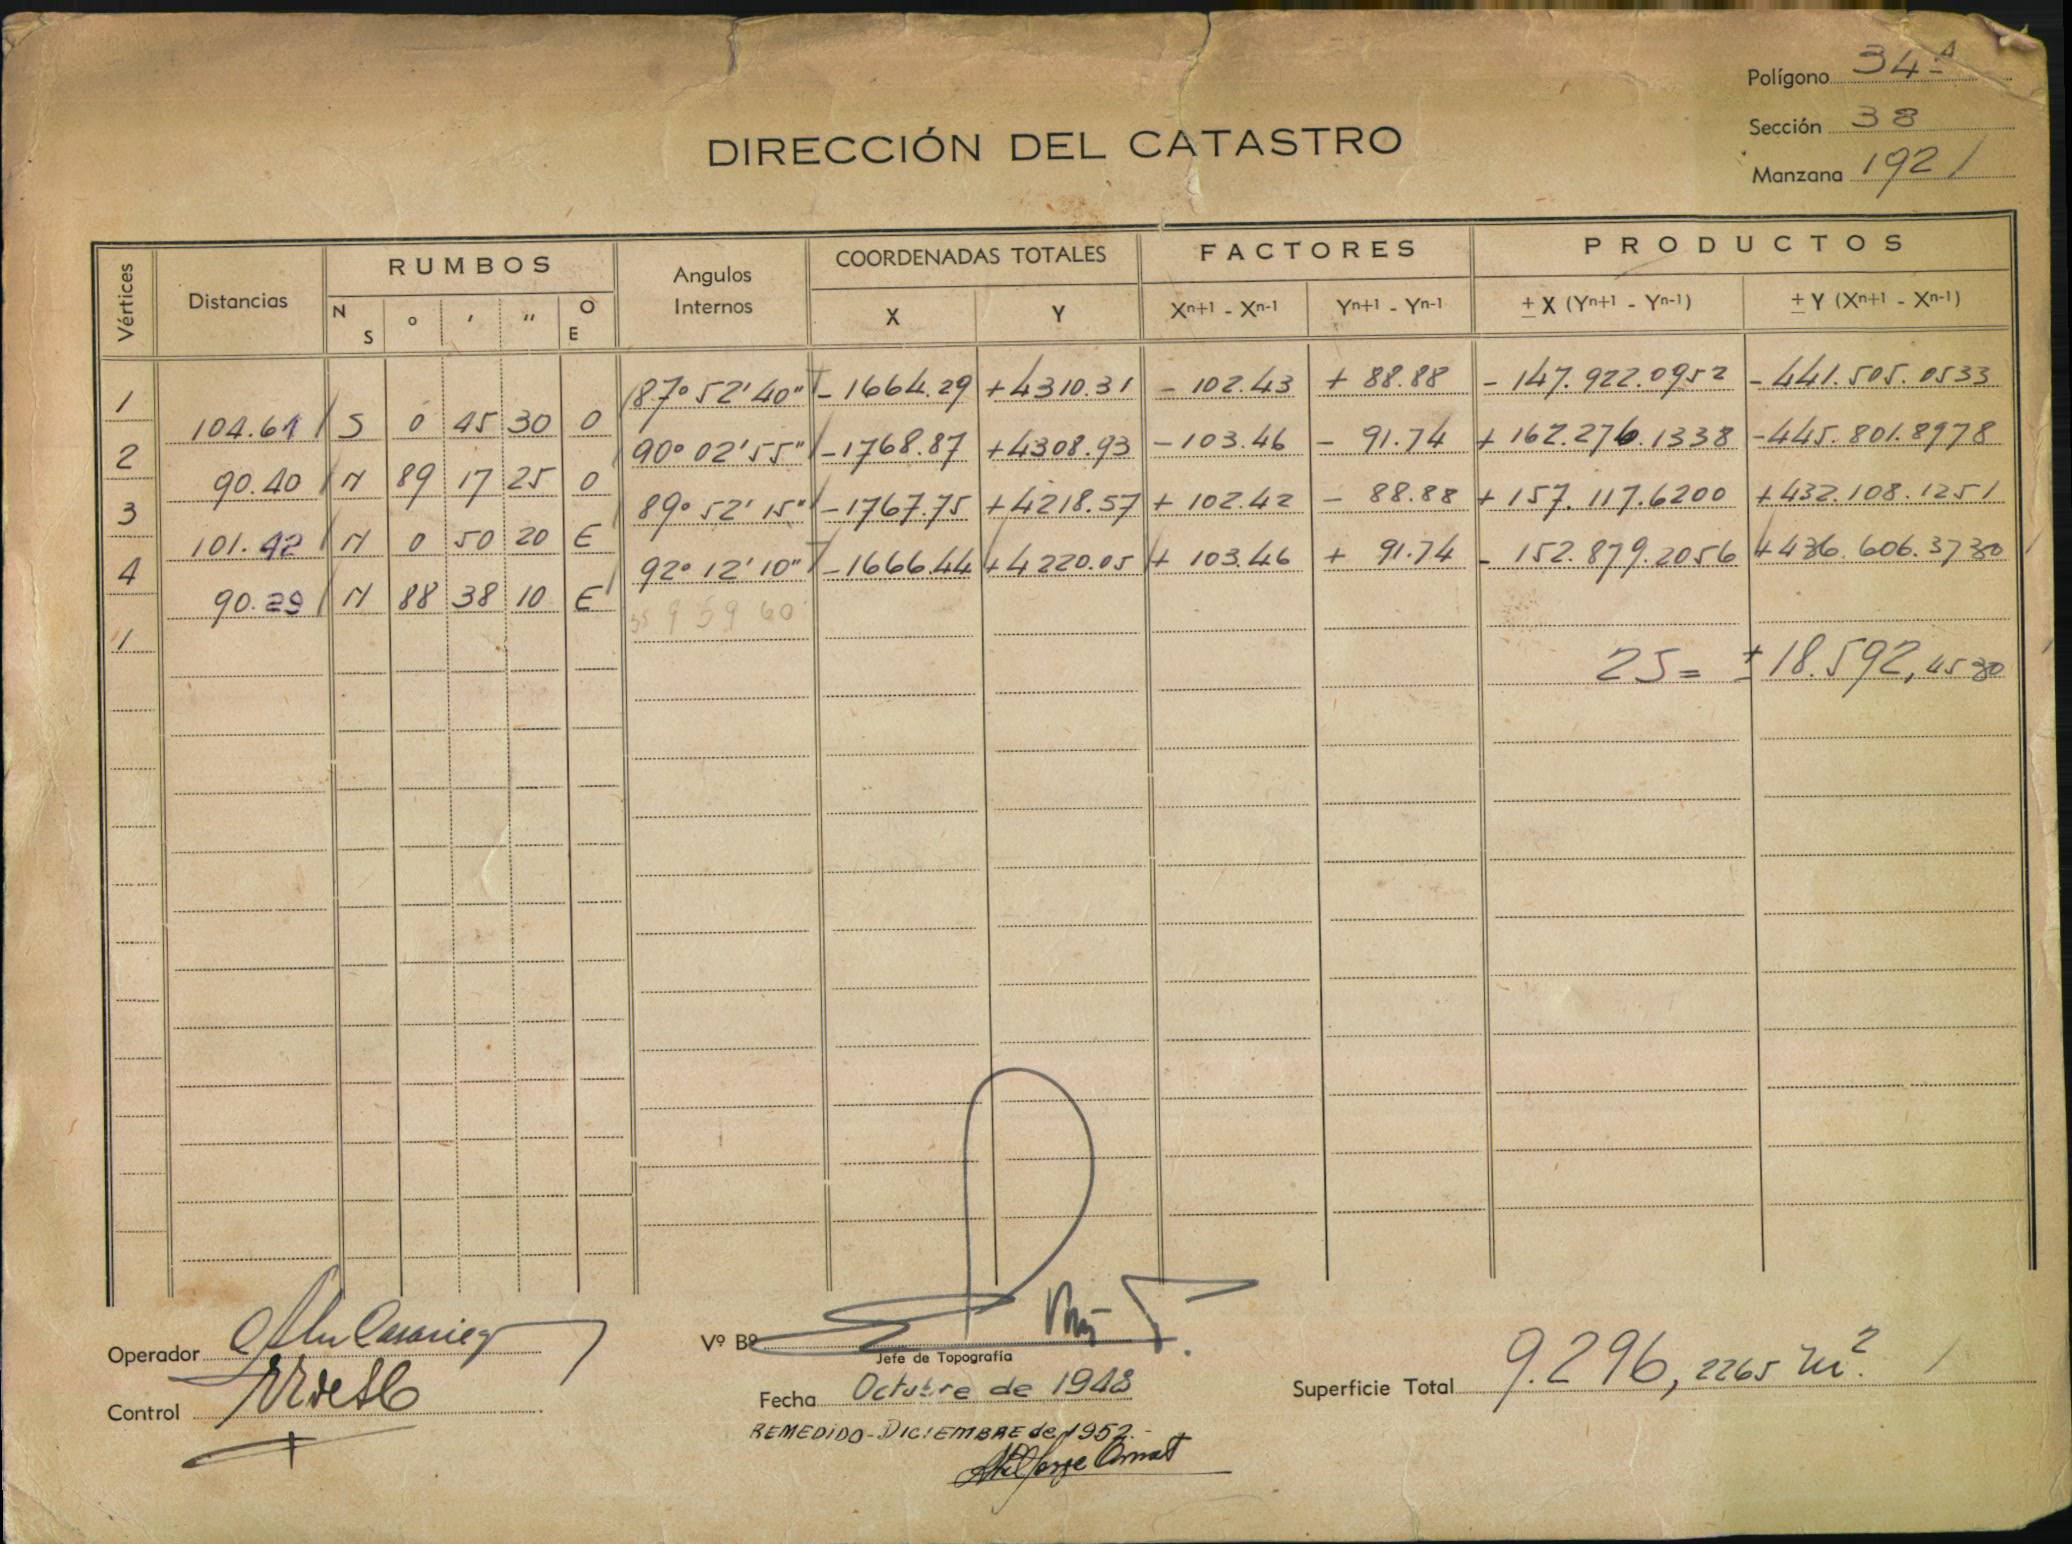 Polígono 34-A
Sección 38
DIRECCIÓN DEL CATASTRO
Manzana 1921
Vértices Distancias RUMBOS Angulos Internos COORDENADAS TOTALES FACTORES PRODUCTOS
N S ° ' " O E X Y Xn+1 - Xn-1 Yn+1 - Yn-1 ± X (Yn+1 - Yn-1) ± Y (Xn+1 - Xn-1)
1 87° 52' 40" -1664.29 +4310.31 - 102.43 + 88.88 - 147.922.0952 -441.505.0533
104.61 S 0 45 30 O
2 90° 02' 55" -1768.87 +4308.93 -103.46 - 91.74 + 162.276.1338 -445.801.8978
90.40 N 89 17 25 O
3 89° 52' 15" -1767.75 +4218.57 + 102.42 - 88.88 + 157.117.6200 +432.108.1251
101.42 N 0 50 20 E
4 92° 12' 10" -1666.44 +4220.05 + 103.46 + 91.74 - 152.879.2056 +436.606.3730
90.29 N 88 38 10 E
359 59 60
1
2S= ± 18.592,4530
Operador
Vº Bº
Jefe de Topografía
Control
Fecha Octubre de 1948
Superficie Total 9.296,2265 m².
REMEDIDO-DICIEMBRE de 1952.-